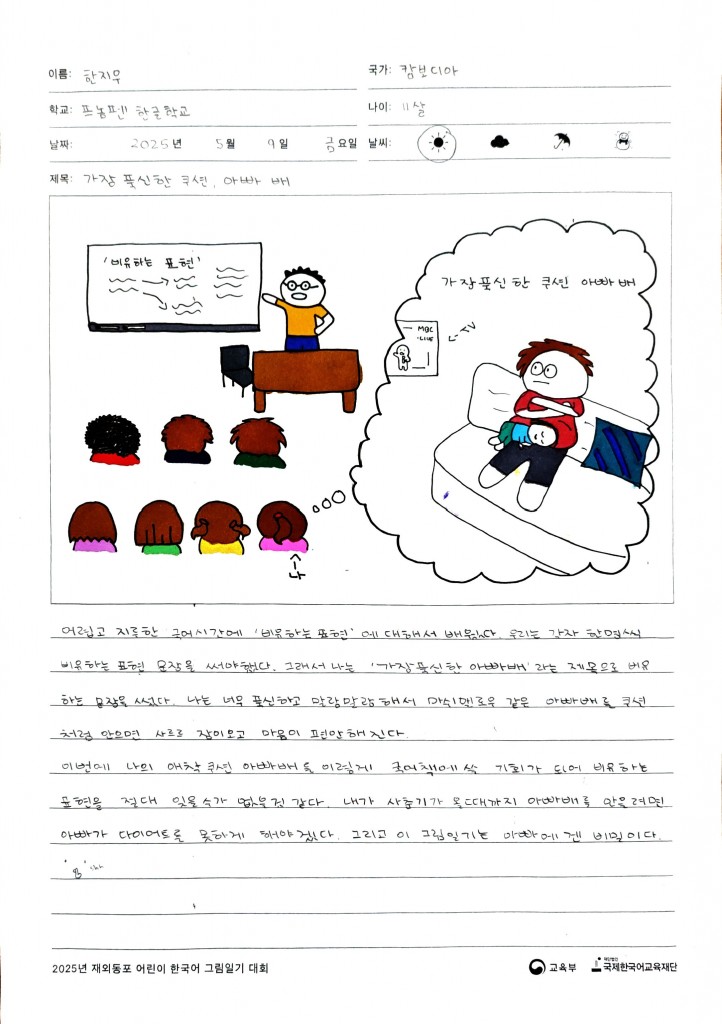 이름: 한지우
국가: 캄보디아
학교: 프놈펜 한글학교
나이: 11살
날짜: 2025년 5월 9일 금요일 날씨:
제목: 가장 푹신한 쿠션, 아빠 배
'비유하는 표현'
가장 푹신한 쿠션 아빠 배
MBC
LIVE
TV
나
어렵고 지루한 국어시간에 '비유하는 표현'에 대해서 배웠다. 우리는 각자 한명씩
비유하는 표현 문장을 써야했다. 그래서 나는 '가장 푹신한 아빠배'라는 제목으로 비유
하는 문장을 썼다. 나는 너무 푹신하고 말랑말랑해서 마쉬멜로우 같은 아빠배를 쿠션
처럼 안으면 사르르 잠이오고 마음이 편안해진다.
이번에 나의 애착쿠션 아빠배를 이렇게 국어책에 쓸 기회가 되어 비유하는
표현을 절대 잊을수가 없을것 같다. 내가 사춘기가 올때까지 아빠배를 안을려면
아빠가 다이어트를 못하게 해야겠다. 그리고 이 그림일기는 아빠에겐 비밀이다.
2025년 재외동포 어린이 한국어 그림일기 대회
교육부
재단법인
국제한국어교육재단